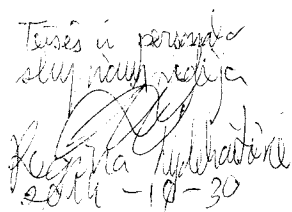 Teisės ir personalo
skyriaus vedėja
Regina
2014-10-30